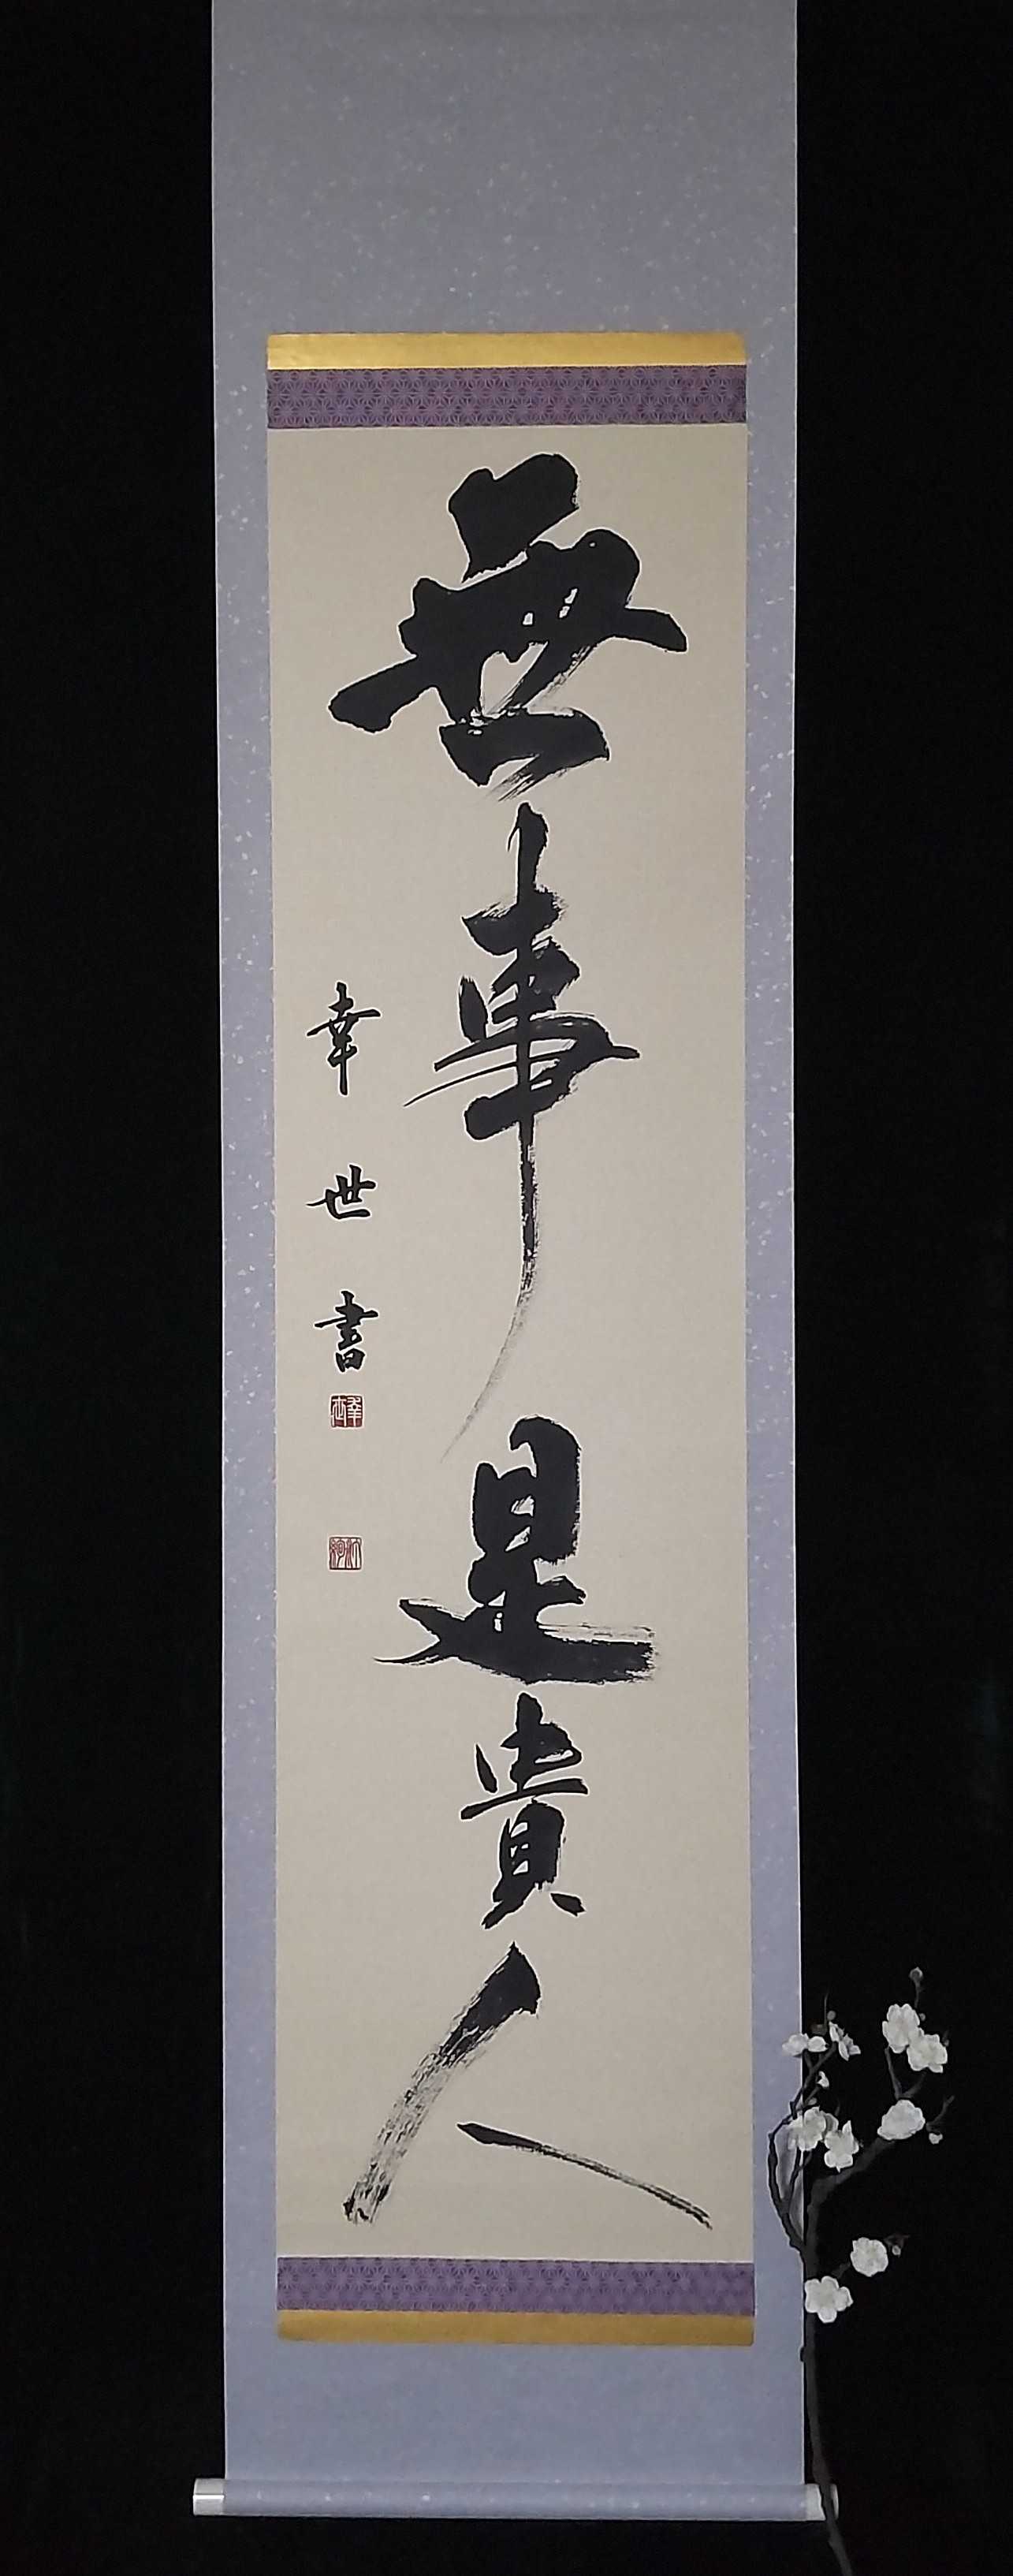 無事是貴人
幸世書
幸世